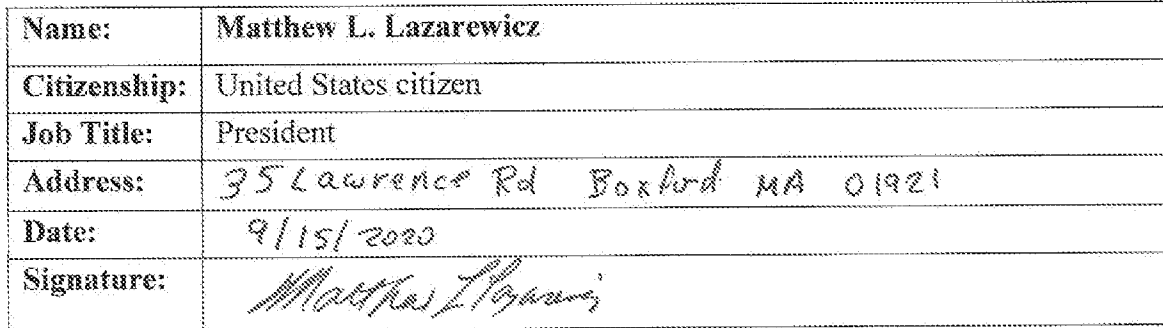 Name: Matthew L. Lazarewicz
Citizenship: United States citizen
Job Title: President
Address: 35 Lawrence Rd Boxford MA 01921
Date: 9/15/2020
Signature: Matthew L Lazarewicz